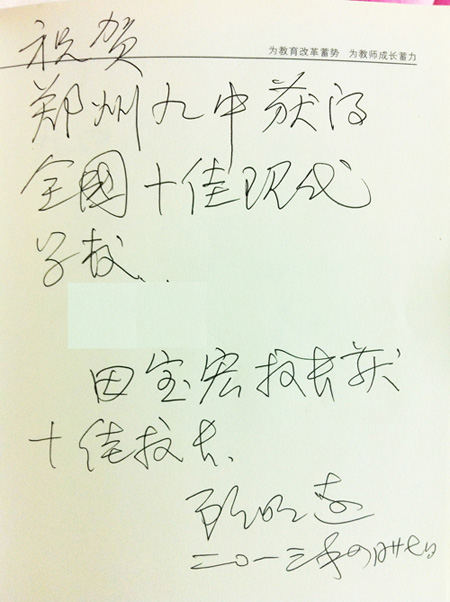 为教育改革蓄势 为教师成长蓄力
祝贺
郑州九中获得
全国十佳现代
学校
田宝宏校长获
十佳校长.
顾明远
二〇一三年四月廿七日